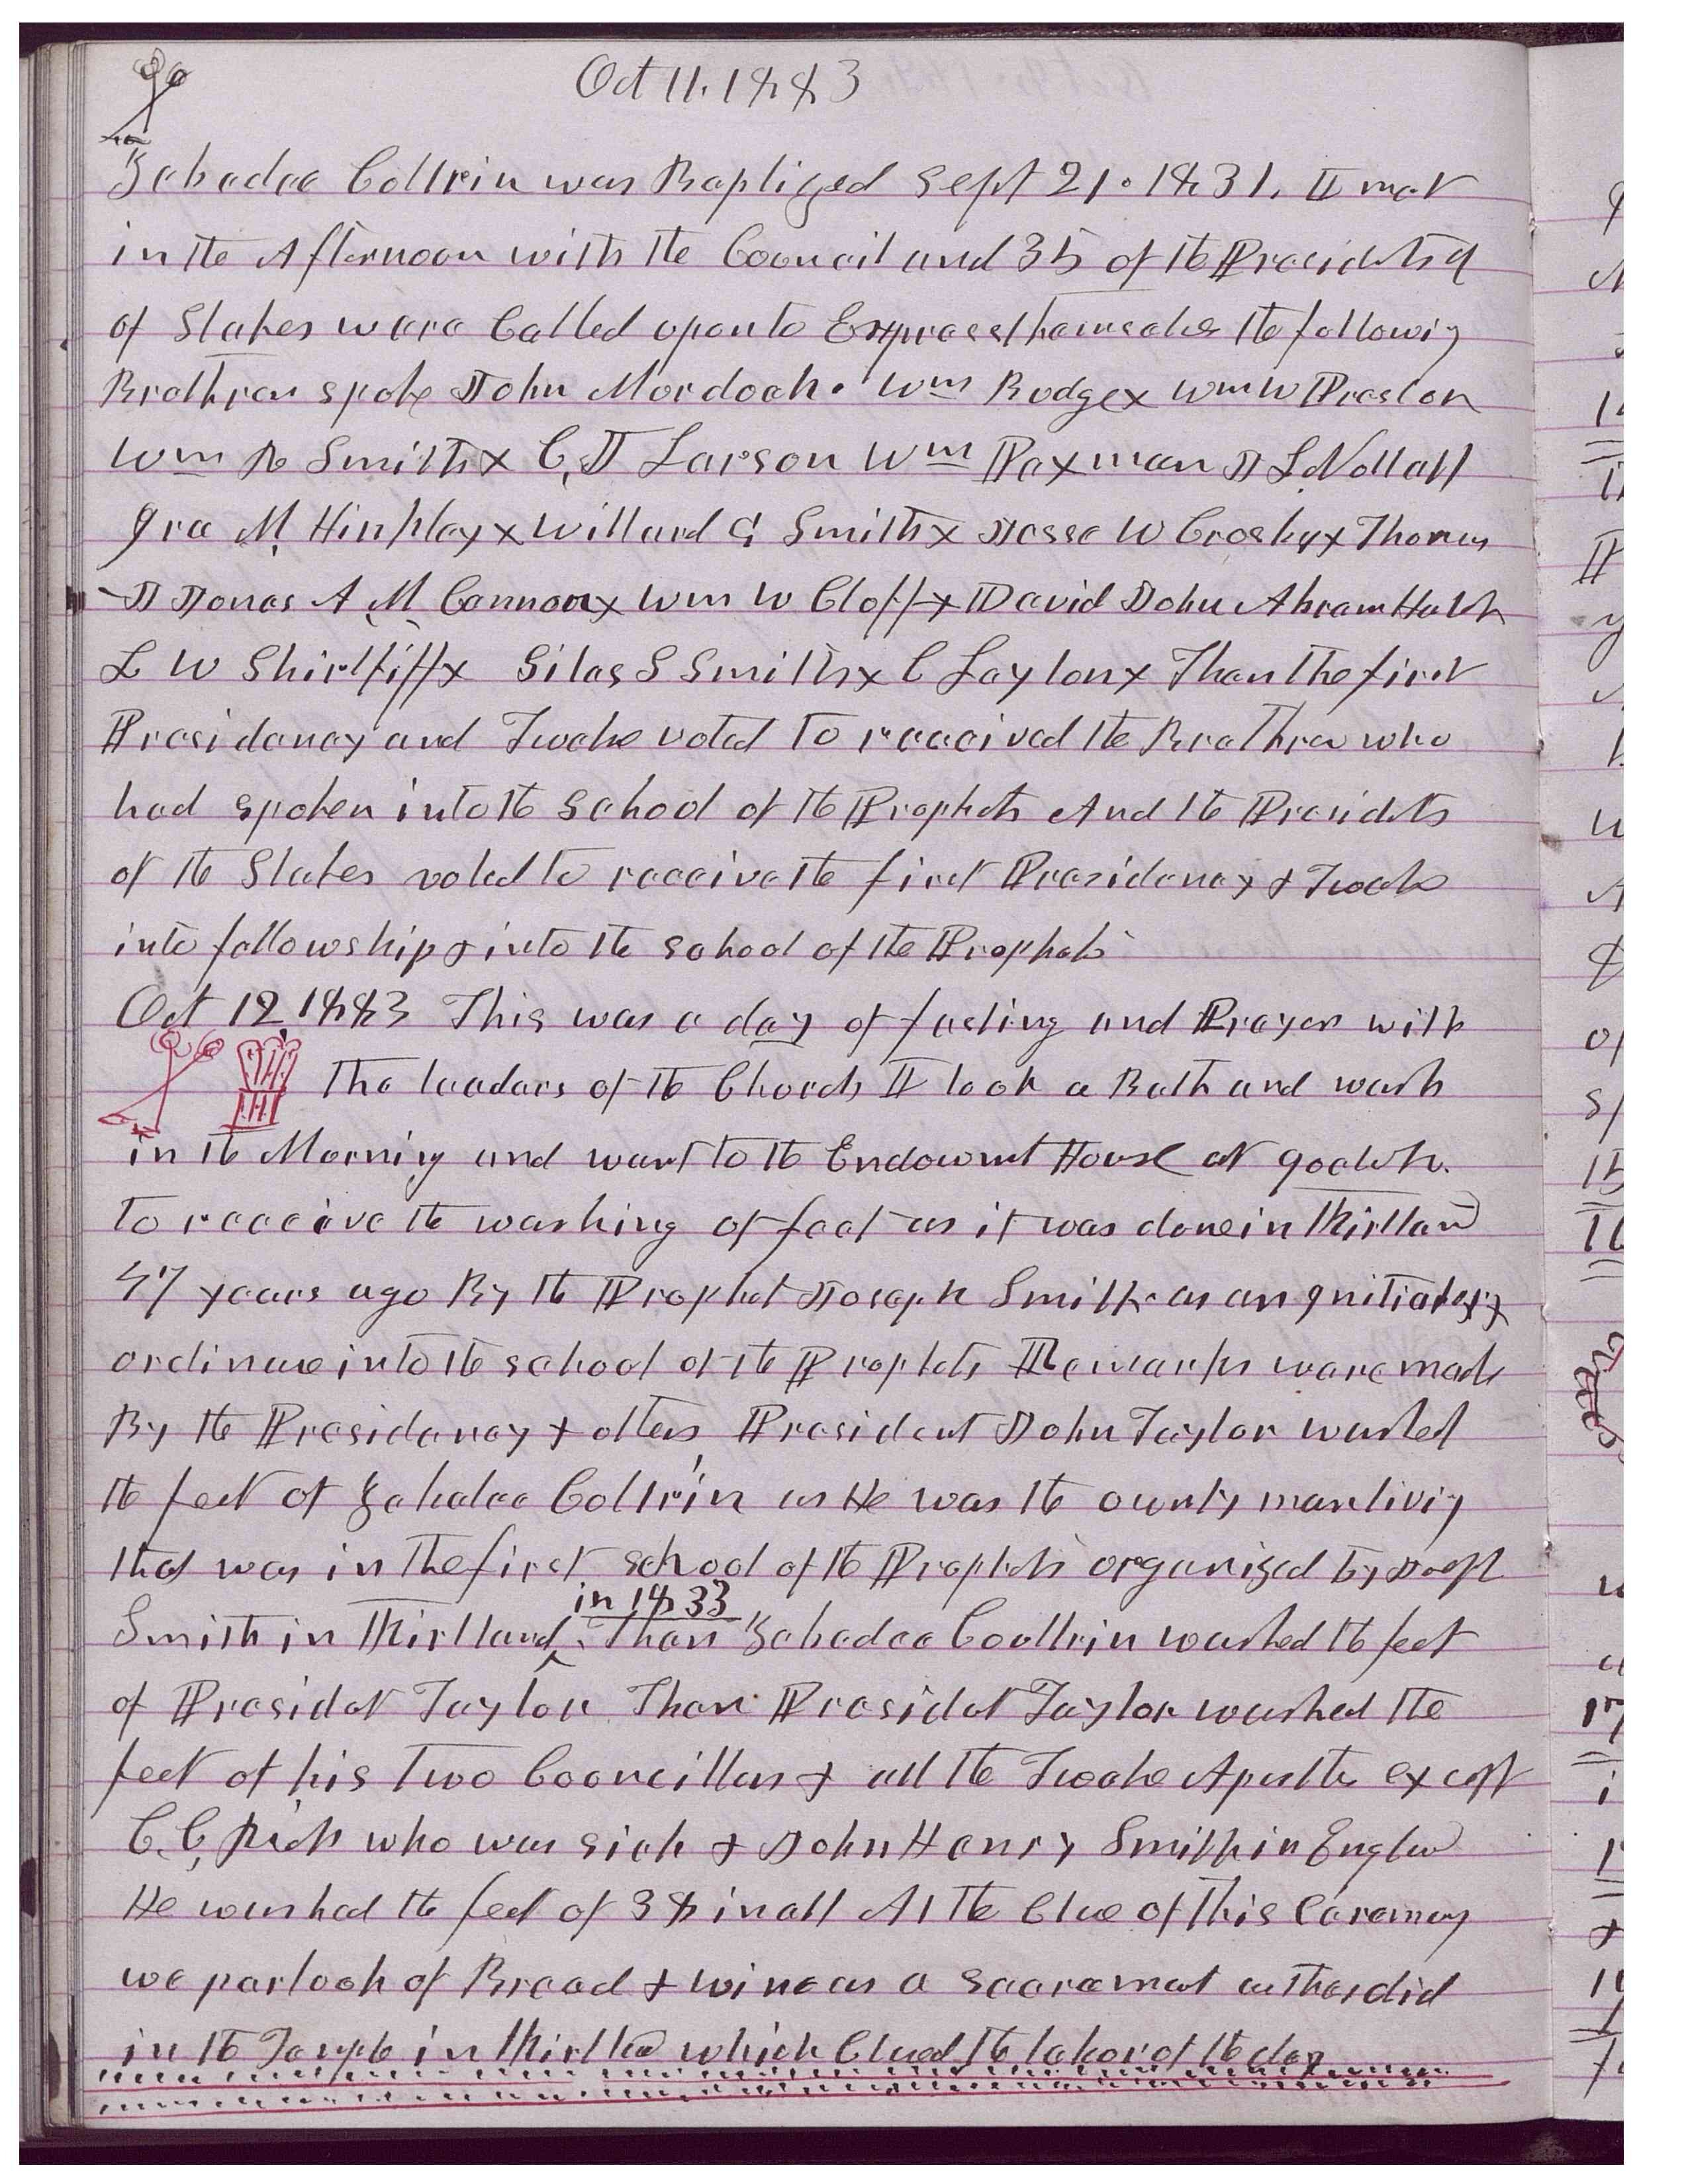 Oct 11. 1883
Zebedee Coltrin was Baptized Sept 21. 1831. I met
in the Afternoon with the Council and 35 of the Presidets of
of Stakes were Called upon to Express themselves the followig
Brethren spoke John Mordock. Wm Budge x Wm W Preston
Wm R Smith x C. J Larson Wm Paxman J L Nottall
Ira M. Hinkley x Willard G Smith x Jesse W Crosby x Thomas
J Jones A. M. Cannon x Wm W Cloff x David John Abram Hatch
L W Shirtliff x Silas S Smith x C Layton x Then the first
Presidency and Twelve voted to received the Brethren who
had spoken into the School of the Prophets And the Presidets
of the Stakes voted to receive the first Presidency & Twelve
into fellowship & into the school of the Prophets
Oct 12, 1883 This was a day of fasting and Prayer with
the leaders of the Church I took a Bath and wash
in the Mornig and went to the Endowmt House at 9 oclok.
to receive the washing of feet as it was done in Kirtland
47 years ago By the Prophet Joseph Smith as an Initiatory
ordinance into the school of the Prophets Remarks were made
By the Presidency & others, President John Taylor washed
the feet of Zebedee Coltrin as He was the ownly man livig
that was in the first school of the Prophets organized by Joseph
in 1833
Smith in Kirtland, Then Zebedee Coultrin washed the feet
of Presidet Taylor Then Presidet Taylor washed the
feet of his Two Councillers & all the Twelve Apostles except
C. C. Rich who was sick & John Henry Smith in England
He washed the feet of 38 in all At the Close of this Ceremony
we partook of Bread & wine as a Sacramet as they did
in the Temple in Kirtland which Closed the labor of the day